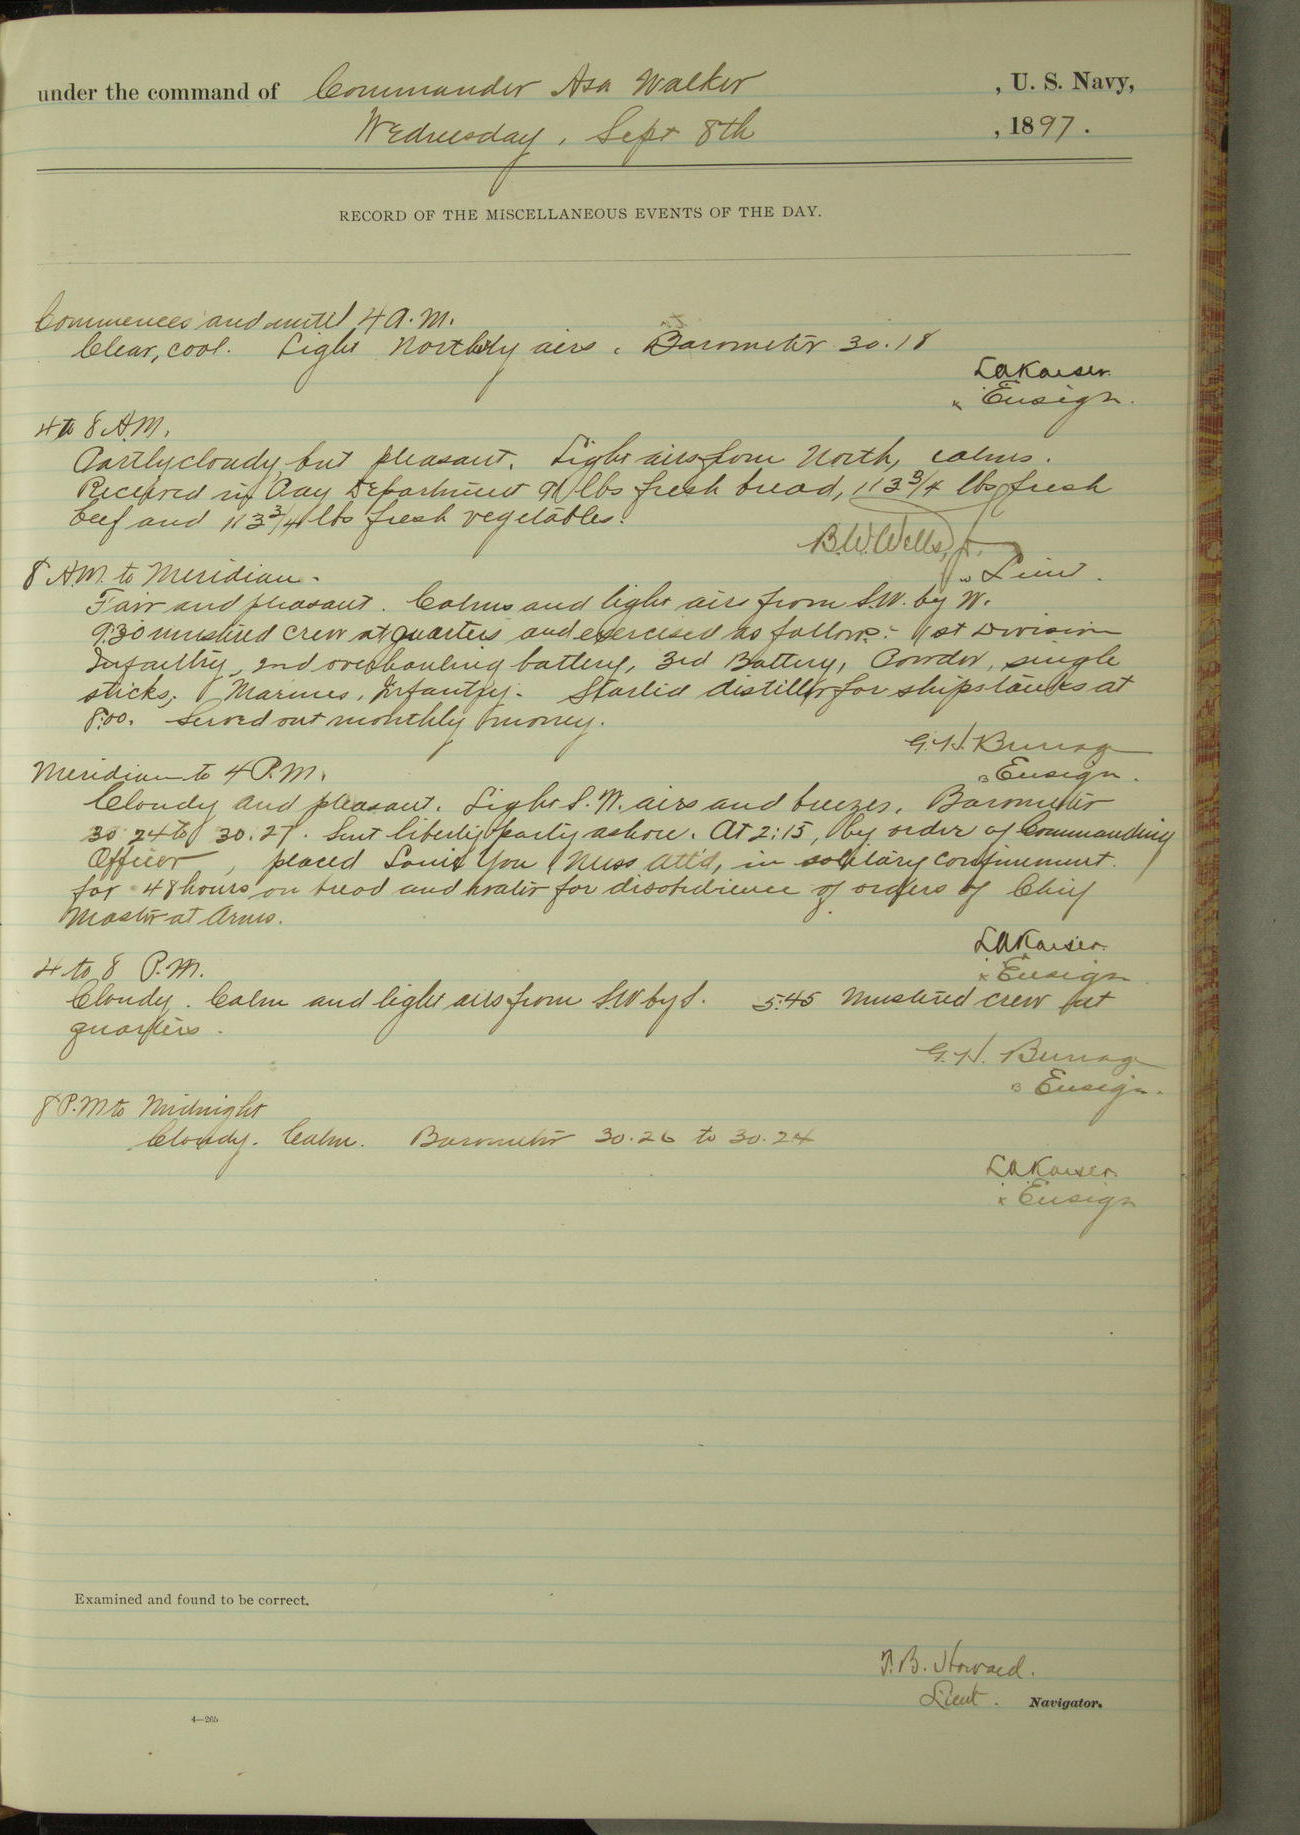 under the command of Commander Asa Walker , U. S. Navy,
Wednesday, Sept 8th , 1897.
RECORD OF THE MISCELLANEOUS EVENTS OF THE DAY.
Commences and until 4 A.M.
Clear, cool. Light Northerly airs. Barometer 30.18
L A Kaiser
Ensign.
4 to 8 A.M.
Partly cloudy but pleasant. Light airs from North, calms.
Received in Pay Department lbs fresh bread, 113 3/4 lbs fresh
beef and 113 3/4 lbs fresh vegetables.
B. W. Wells, Jr.
Lieut.
8 A.M. to Meridian.
Fair and pleasant. Calms and light airs from S.W. by W.
9:30 mustered crew at quarters and exercised as follows:- 1st Division
Infantry, 2nd overhauling battery, 3rd Battery, Powder, single
sticks; Marines, Infantry. Started distiller for ships tanks at
8:00. Served out monthly money.
G. H. Burrage
Ensign.
Meridian to 4 P.M.
Cloudy and pleasant. Light S. W. airs and breezes. Barometer
30.24 to 30.27. Sent liberty party ashore. At 2:15, by order of Commanding
Officer, placed Louis You (Mess Att'd, in solitary confinement
for 48 hours on bread and water for disobedience of orders of Chief
Master at Arms.
L A Kaiser
Ensign
4 to 8 P.M.
Cloudy. Calm and light airs from S.W. by S. 5:45 Mustered crew at
quarters.
G. H. Burrage
Ensign.
8 P.M to Midnight
Cloudy. Calm. Barometer 30.26 to 30.24
L A Kaiser
Ensign
Examined and found to be correct.
T. B. Howard.
Lieut. Navigator.
4—265